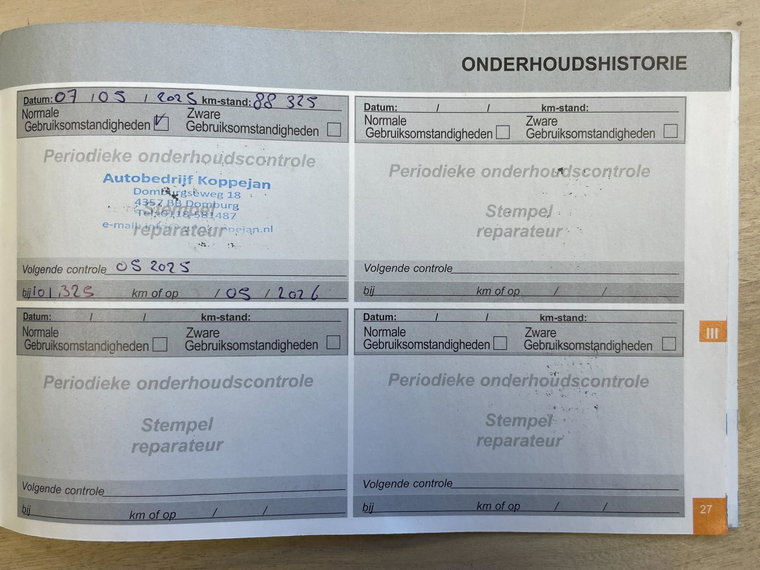 ONDERHOUDSHISTORIE
Datum: 07 / 05 / 2025 km-stand: 88 325
Normale Gebruiksomstandigheden ✓ Zware Gebruiksomstandigheden
Periodieke onderhoudscontrole
Autobedrijf Koppejan
Domburgseweg 18
4357 BB Domburg
Tel: 0118-581487
Stempel
reparateur
Volgende controle 05 2025
bij 101,325 km of op / 05 / 2026
Datum: / / km-stand:
Normale Gebruiksomstandigheden Zware Gebruiksomstandigheden
Periodieke onderhoudscontrole
Stempel
reparateur
Volgende controle
bij km of op / /
Datum: / / km-stand:
Normale Gebruiksomstandigheden Zware Gebruiksomstandigheden
Periodieke onderhoudscontrole
Stempel
reparateur
Volgende controle
bij km of op / /
Datum: / / km-stand:
Normale Gebruiksomstandigheden Zware Gebruiksomstandigheden
Periodieke onderhoudscontrole
Stempel
reparateur
Volgende controle
bij km of op / /
III
27